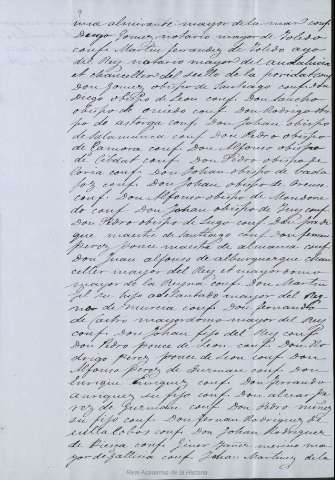 una almirante mayor de la mar conf
Diego Gomez notario mayor de Toledo
conf. Martin ferrandez de Toledo ayo
del Rey notario mayor del Andalucia
et chanceller del sello de la poridat conf
Don Gomez obispo de Santiago conf. Don
Diego obispo de Leon conf. Don Sancho
obispo de Oviedo conf. Don Rodrigo obis
po de Astorga conf. Don Johan obispo
de Salamanca conf. Don Pedro obispo
de Zamora conf. Don Alfonso obispo
de Cibdat conf. Don Pedro obispo de
Coria conf. Don Johan obispo de Bada
joz conf. Don Johan obispo de Orens
conf. Don Alfonso obispo de Mondone
do conf. Don Johan obispo de Tuy conf
Don Pedro obispo de Lugo conf. Don
que maestre de Santiago conf. Don
perez ponce maestre de alcantra conf
Don Juan alfonso de alburquerque chan
celler mayor del Rey et mayordomo
mayor de la Reyna conf. Don Martin
gil su fijo adelantado mayor del Rey
no de Murcia conf. Don Fernando
de Castro mayordomo mayor del Rey
conf. Don Johan fijo del Rey conf
Don Pedro ponce de Leon conf. Don Ro
drigo Perez ponce de Leon conf. Don
Alfonso Perez de Guzman conf. Don
Enrique Enriquez conf. Don ferrando
enriquez su fijo conf. Don alvar
rez de Guzmán conf. Don Pedro nuñez
su fijo conf. Don fernan Rodriguez de
villalobos conf. Don Johan Rodriguez
de conf. merino ma
yor de Gallicia conf. Johan Martinez de la
Real Academia de la Historia